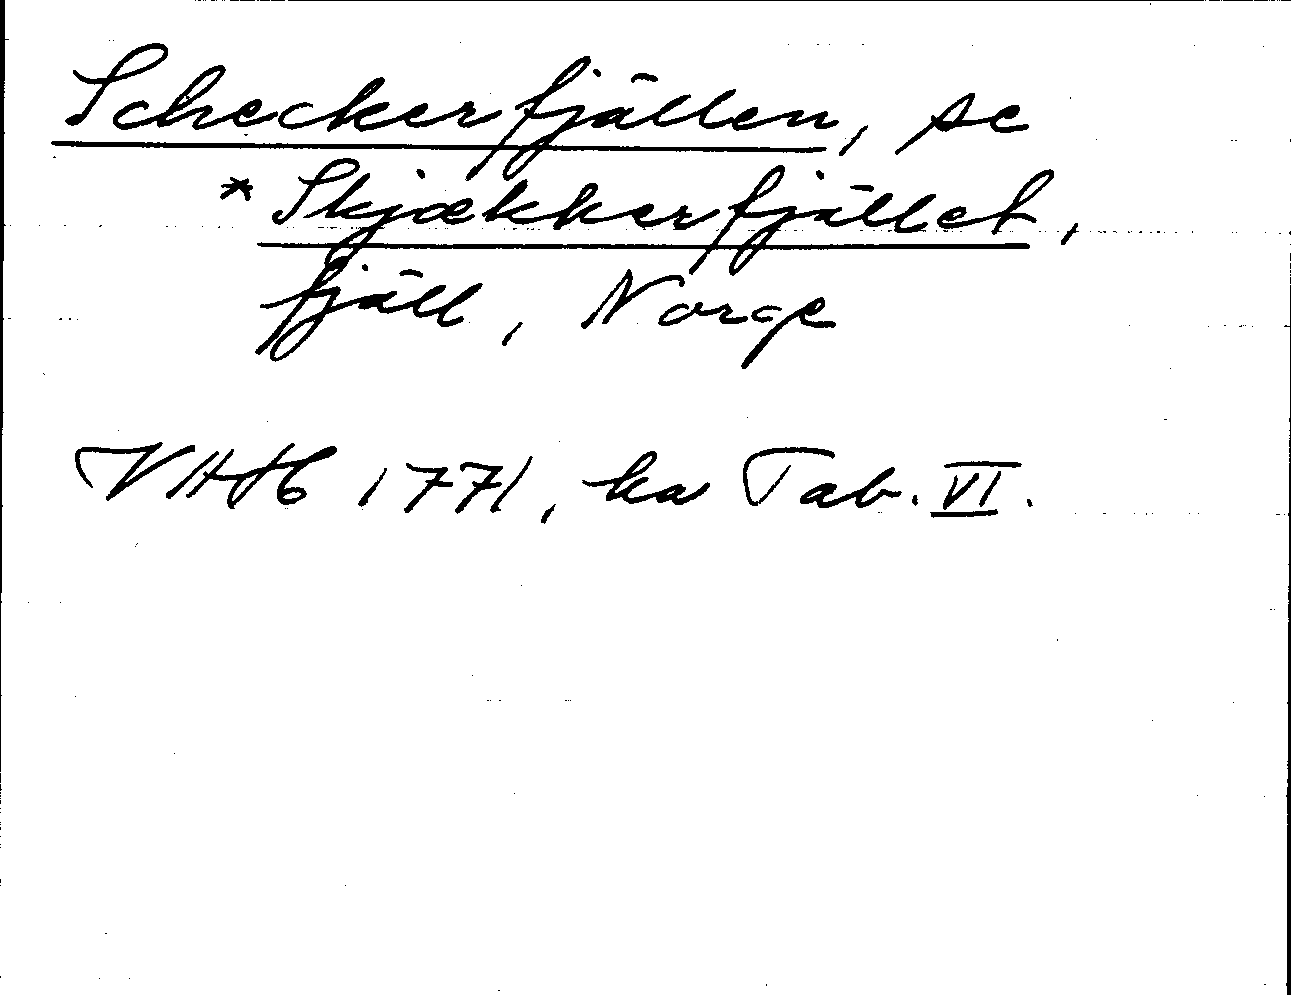 Scheckerfjällen, se
* Skjækkerfjället,
fjäll, Norge
VHH 1771, ka Tab. VI.